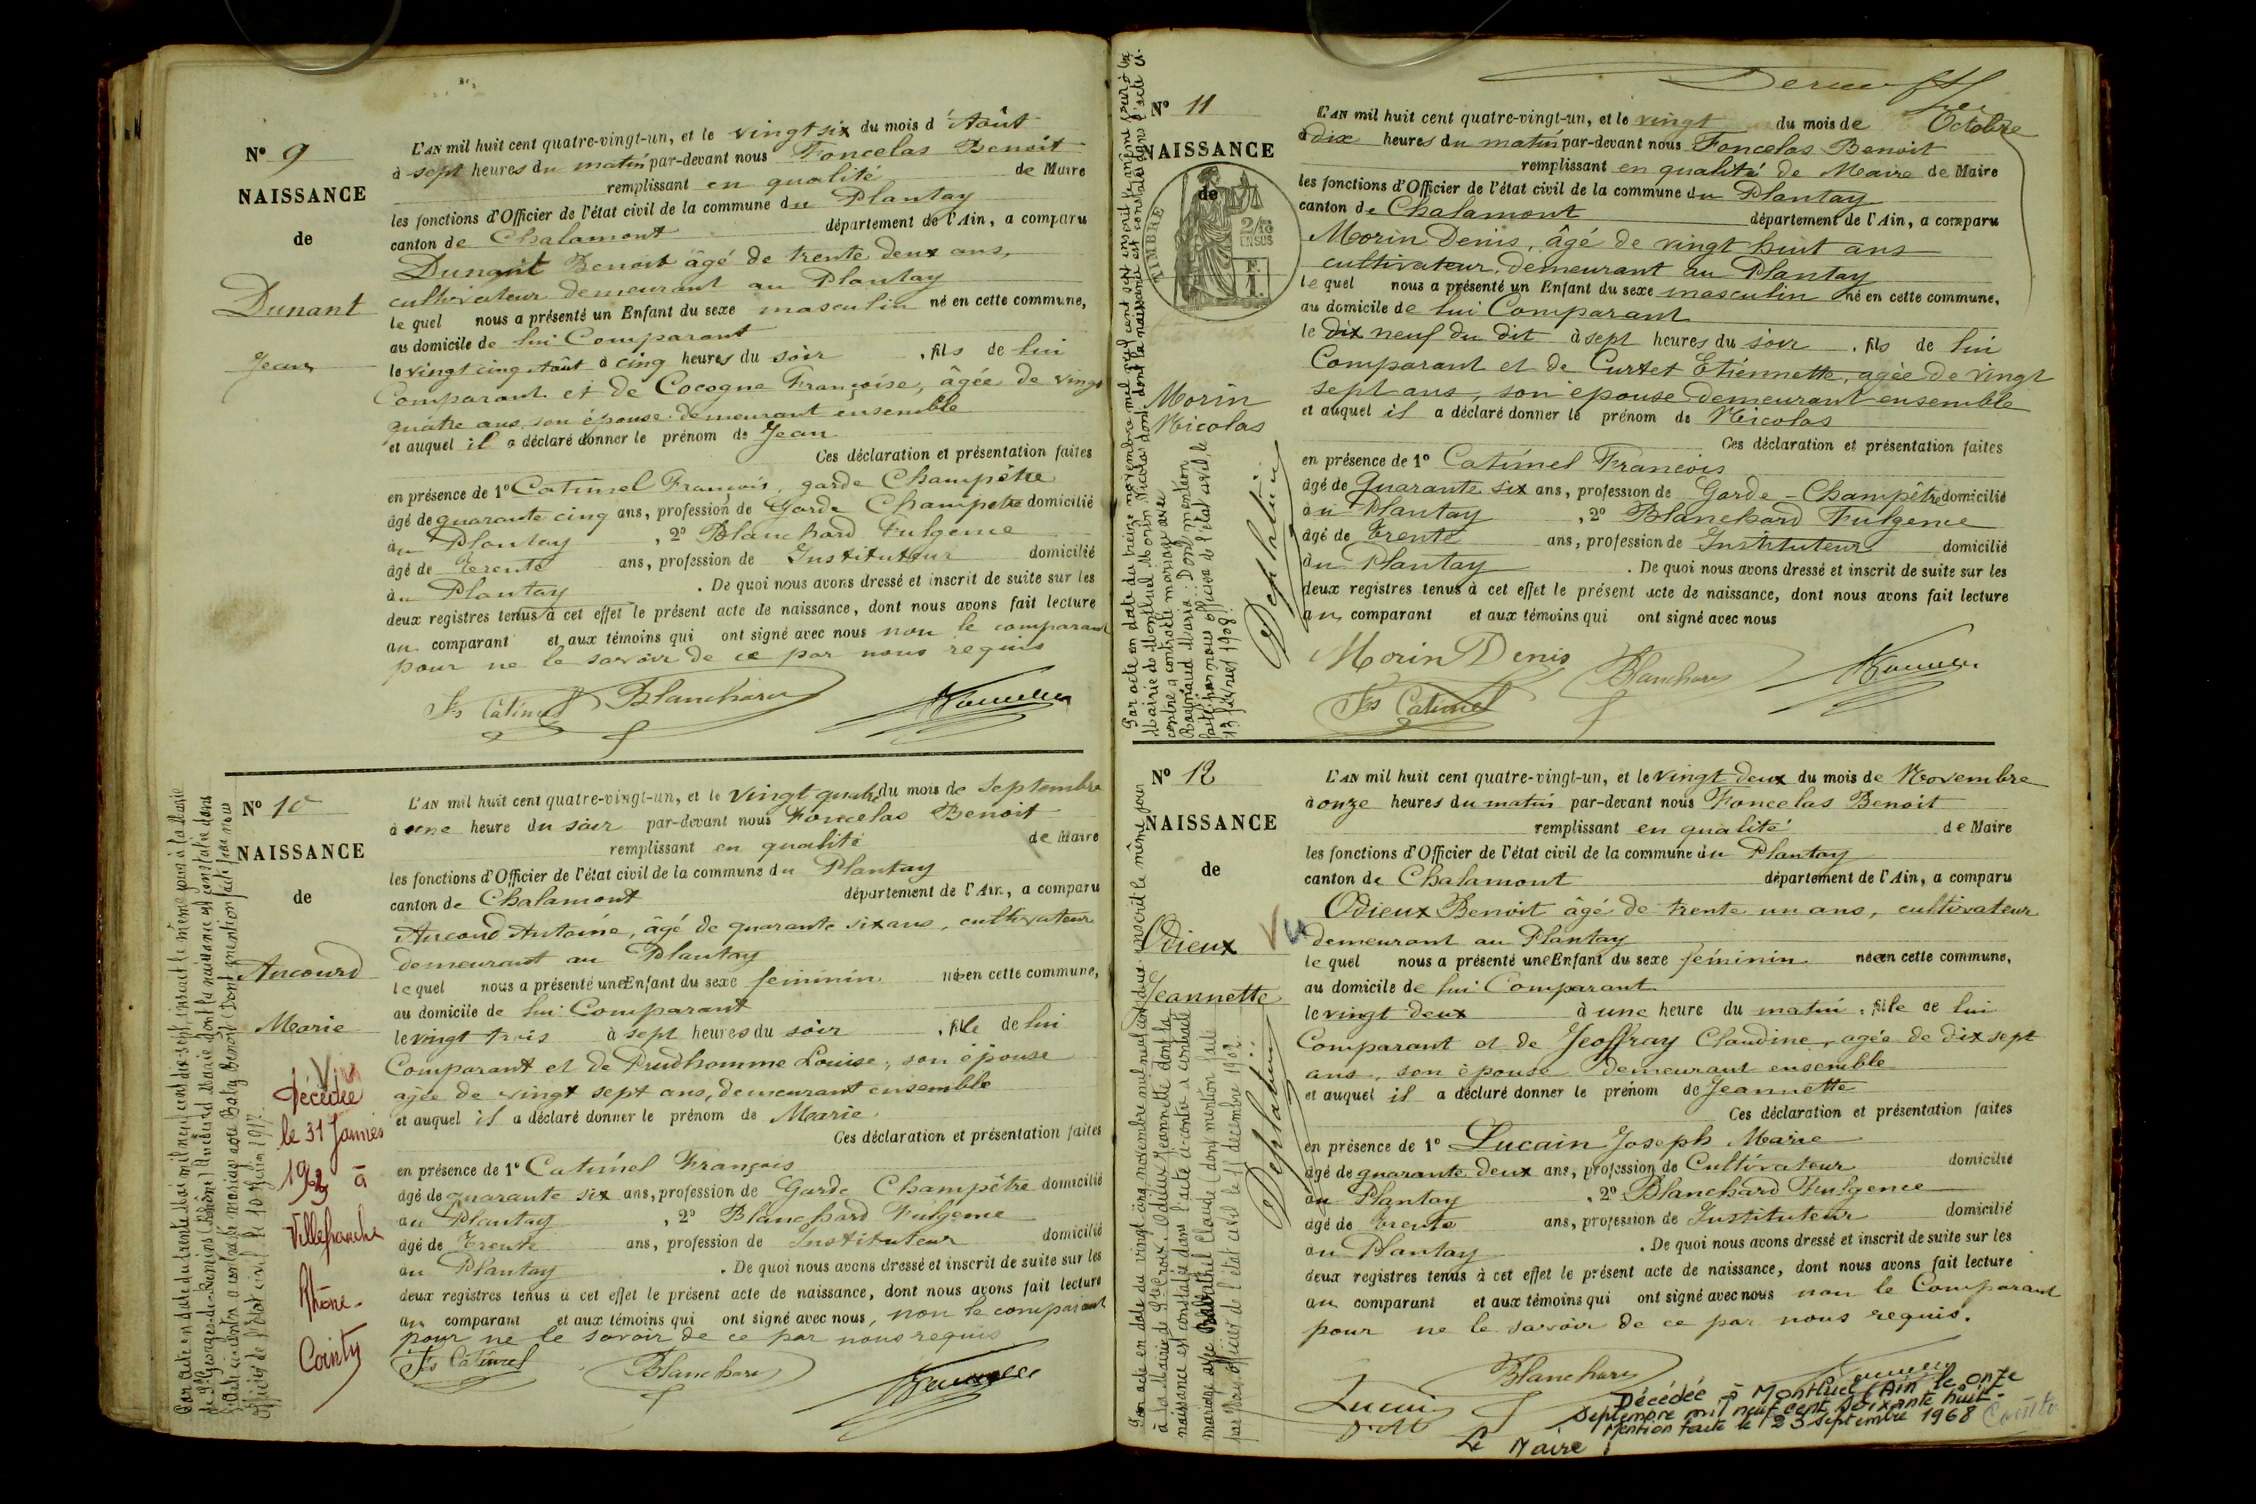 Nº 9
NAISSANCE
de
Dunant
Jean
L'AN mil huit cent quatre-vingt-un, et le vingt six du mois d'Août
à sept heures du matin par-devant nous Foncelas Benoit
remplissant en qualité de Maire
les fonctions d'Officier de l'état civil de la commune du Plantay
canton de Chalamont département de l'Ain, a comparu
Dunant Benoit âgé de trente deux ans,
cultivateur demeurant au Plantay
lequel nous a présenté un Enfant du sexe masculin né en cette commune,
au domicile de lui Comparant
le vingt cinq Août à cinq heures du soir, fils de lui
Comparant et de Cocogne Françoise, âgée de vingt
quatre ans, son épouse demeurant ensemble
et auquel il a déclaré donner le prénom de Jean
Ces déclaration et présentation faites
en présence de 1º Catimel François, garde Champêtre
âgé de quarante cinq ans, profession de Garde Champêtre domicilié
au Plantay, 2º Blanchard Fulgence
âgé de Trente ans, profession de Instituteur domicilié
au Plantay. De quoi nous avons dressé et inscrit de suite sur les
deux registres tenus à cet effet le présent acte de naissance, dont nous avons fait lecture
au comparant et aux témoins qui ont signé avec nous non le comparant
pour ne le savoir de ce par nous requis
Fs Catimel Blanchard
Nº 10
NAISSANCE
de
Ancourd
Marie
Vu
Décédée
le 31 Janvier
à
Villefranche
Rhône
Cointy
Par acte en date du trente Mai mil neuf cent dix-sept, inscrit le même jour à la Mairie
de St Georges-de-Reneins (Rhône) Ancourd Marie dont la naissance est constatée dans
l'acte ci-contre a contracté mariage avec Baty Benoit (Dont mention faite par nous
Officier de l'état civil le 10 Juin 1917.
L'AN mil huit cent quatre-vingt-un, et le vingt quatre du mois de Septembre
à une heure du soir par-devant nous Foncelas Benoit
remplissant en qualité de Maire
les fonctions d'Officier de l'état civil de la commune du Plantay
canton de Chalamont département de l'Ain, a comparu
Ancourd Antoine, âgé de quarante six ans, cultivateur
demeurant au Plantay
lequel nous a présenté une Enfant du sexe féminin née en cette commune,
au domicile de lui Comparant
le vingt trois à sept heures du soir, fille de lui
Comparant et de Prudhomme Louise, son épouse
âgée de vingt sept ans, demeurant ensemble
et auquel il a déclaré donner le prénom de Marie
Ces déclaration et présentation faites
en présence de 1º Catimel François
âgé de quarante six ans, profession de Garde Champêtre domicilié
au Plantay, 2º Blanchard Fulgence
âgé de Trente ans, profession de Instituteur domicilié
au Plantay. De quoi nous avons dressé et inscrit de suite sur les
deux registres tenus à cet effet le présent acte de naissance, dont nous avons fait lecture
au comparant et aux témoins qui ont signé avec nous, non le comparant
pour ne le savoir de ce par nous requis
Fs Catimel Blanchard
Nº 11
NAISSANCE
de
TIMBRE
2/10
EN SUS
Morin
Nicolas
Par acte en date du treize novembre mil neuf cent sept inscrit le même jour à la
Mairie de Montluel Morin Nicolas dont la naissance est constatée dans l'acte ci-
contre a contracté mariage avec
Raymand Maria. Dont mention
faite par nous officier de l'état civil, le
13 février 1908.
Dephlatieu
L'AN mil huit cent quatre-vingt-un, et le vingt du mois de Octobre
à dix heures du matin par-devant nous Foncelas Benoit
remplissant en qualité de Maire de Maire
les fonctions d'Officier de l'état civil de la commune du Plantay
canton de Chalamont département de l'Ain, a comparu
Morin Denis, âgé de vingt huit ans
cultivateur, demeurant au Plantay
lequel nous a présenté un Enfant du sexe masculin né en cette commune,
au domicile de lui Comparant
le dix neuf du dit à sept heures du soir, fils de lui
Comparant et de Curtet Etiennette, agée de vingt
sept ans, son épouse demeurant ensemble
et auquel il a déclaré donner le prénom de Nicolas
Ces déclaration et présentation faites
en présence de 1º Catimel Francois
âgé de Quarante six ans, profession de Garde-Champêtre domicilié
au Plantay, 2º Blanchard Fulgence
âgé de Trente ans, profession de Instituteur domicilié
au Plantay. De quoi nous avons dressé et inscrit de suite sur les
deux registres tenus à cet effet le présent acte de naissance, dont nous avons fait lecture
au comparant et aux témoins qui ont signé avec nous
Morin Denis Blanchard
Fs Catimel
Nº 12
NAISSANCE
de
Odieux
Vu
Jeannette
Par acte en date du vingt cinq novembre mil neuf cent deux inscrit le même jour
à la Mairie de Ste Croix, Odieux Jeannette dont la
naissance est constatée dans l'acte ci-contre a contracté
mariage avec Claude (dont mention faite
par nous officier de l'état civil le 11 décembre 1902.
Dephlatieu
L'AN mil huit cent quatre-vingt-un, et le vingt deux du mois de Novembre
à onze heures du matin par-devant nous Foncelas Benoit
remplissant en qualité de Maire
les fonctions d'Officier de l'état civil de la commune du Plantay
canton de Chalamont département de l'Ain, a comparu
Odieux Benoit âgé de trente un ans, cultivateur
demeurant au Plantay
lequel nous a présenté une Enfant du sexe féminin née en cette commune,
au domicile de lui Comparant
le vingt deux à une heure du matin, fille de lui
Comparant et de Jeoffray Claudine, agée de dix sept
ans, son épouse demeurant ensemble
et auquel il a déclaré donner le prénom de Jeannette
Ces déclaration et présentation faites
en présence de 1º Lucain Joseph Marie
âgé de quarante deux ans, profession de Cultivateur domicilié
au Plantay, 2º Blanchard Fulgence
âgé de trente ans, profession de Instituteur domicilié
au Plantay. De quoi nous avons dressé et inscrit de suite sur les
deux registres tenus à cet effet le présent acte de naissance, dont nous avons fait lecture
au comparant et aux témoins qui ont signé avec nous non le Comparant
pour ne le savoir de ce par nous requis.
Blanchard
Lucain
Décédée à Montluel (Ain) le onze
Septembre mil neuf cent soixante huit.
Mention faite le 23 septembre 1968
Le Maire
Cointy